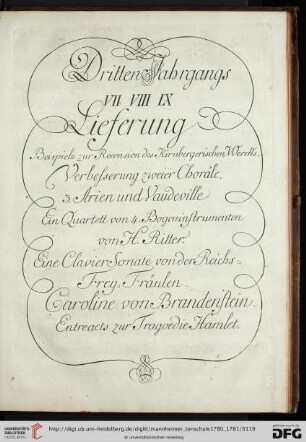 Dritten Jahrgangs
VII VIII IX
Lieferung
Beispiele zur Recension des Kirnbergerischen Wercks.
Verbesserung zweier Choräle.
3. Arien und Vaudeville
Ein Quartett von 4. Bogeninstrumenten
von H. Ritter.
Eine Clavier Sonate von der Reichs-
Frey Fräulen
Caroline von Brandenstein.
Entreacts zur Tragoedie Hamlet.
UNIVERSITÄTS-
BIBLIOTHEK
HEIDELBERG
http://digi.ub.uni-heidelberg.de/diglit/mannheimer_tonschule1780_1781/0119
© Universitätsbibliothek Heidelberg
gefördert durch die
DFG